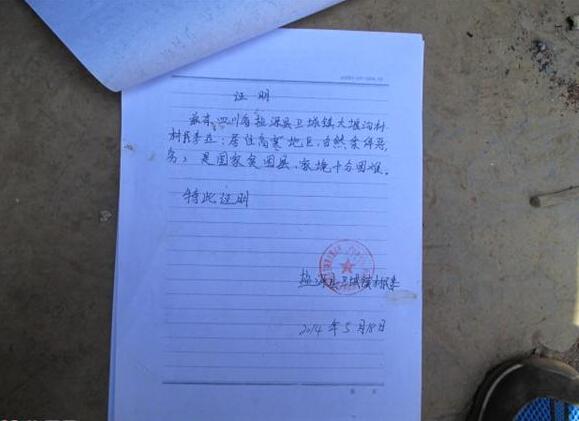 证明
兹有四川省盐源县卫城镇大堰沟村
村民李芸：居住高寒地区，自然条件恶
劣，是国家贫困县，家境十分困难。
特此证明
盐源县卫城镇
2014年5月18日